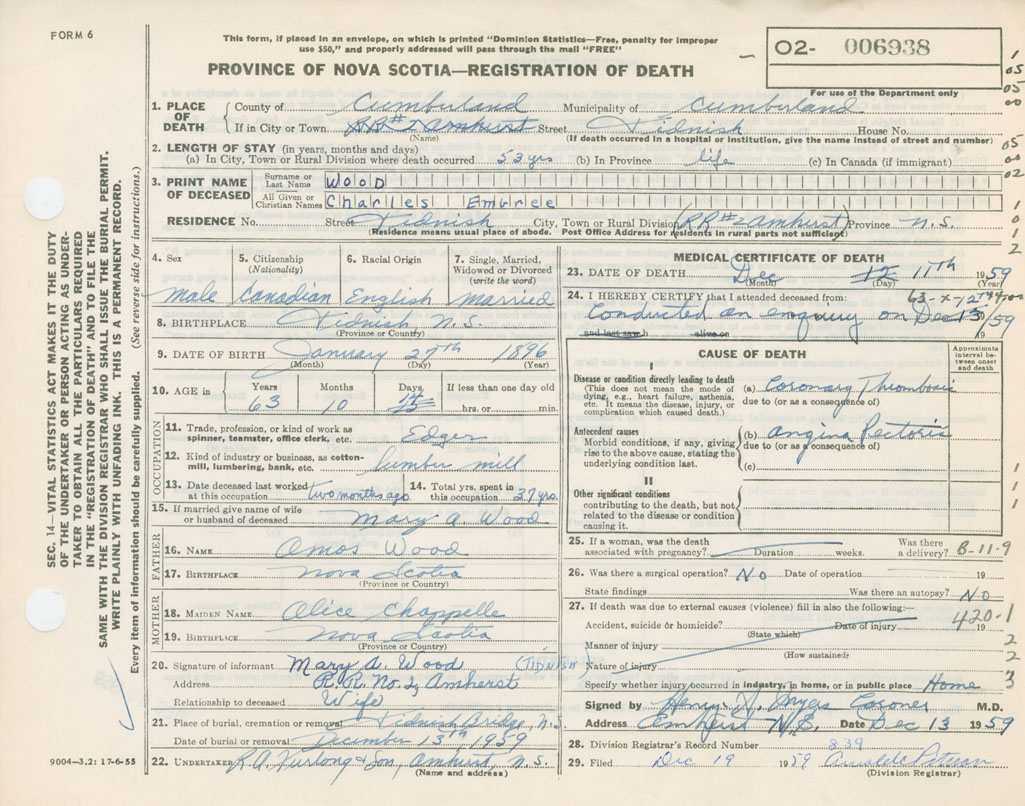 FORM 6
This form, if placed in an envelope, on which is printed "Dominion Statistics—Free, penalty for improper
use $50," and properly addressed will pass through the mail "FREE"
O2- 006938
PROVINCE OF NOVA SCOTIA—REGISTRATION OF DEATH
For use of the Department only
1. PLACE OF DEATH County of Cumberland Municipality of Cumberland
If in City or Town RR#2 Amhurst Street Tidnish House No.
(Name) (If death occurred in a hospital or Institution, give the name instead of street and number)
2. LENGTH OF STAY (in years, months and days)
(a) In City, Town or Rural Division where death occurred 53 yrs (b) In Province life (c) In Canada (if immigrant)
3. PRINT NAME OF DECEASED Surname or Last Name Wood
All Given or Christian Names Charles Embree
RESIDENCE No. Street Tidnish City, Town or Rural Division (RR#2 Amhurst) Province N.S.
(Residence means usual place of abode. Post Office Address for residents in rural parts not sufficient)
4. Sex Male
5. Citizenship (Nationality) Canadian
6. Racial Origin English
7. Single, Married, Widowed or Divorced (write the word) married
8. BIRTHPLACE Tidnish, N.S.
(Province or Country)
9. DATE OF BIRTH January 27th 1896
(Month) (Day) (Year)
10. AGE in Years 63 Months 10 Days 14 If less than one day old hrs. or min.
OCCUPATION
11. Trade, profession, or kind of work as spinner, teamster, office clerk, etc. Edger
12. Kind of industry or business, as cotton-mill, lumbering, bank, etc. lumber mill
13. Date deceased last worked at this occupation two months ago
14. Total yrs. spent in this occupation 37 yrs.
15. If married give name of wife or husband of deceased Mary A. Wood
FATHER
16. NAME Amos Wood
17. BIRTHPLACE Nova Scotia
(Province or Country)
MOTHER
18. MAIDEN NAME Alice Chappelle
19. BIRTHPLACE Nova Scotia
(Province or Country)
20. Signature of informant Mary A. Wood (TIDNISH)
Address R.R. No. 2, Amherst
Relationship to deceased Wife
21. Place of burial, cremation or removal Tidnish Bridge, N.S.
Date of burial or removal December 13th 1959
22. UNDERTAKER R.A. Furlong & Son, Amhurst, N.S.
(Name and address)
MEDICAL CERTIFICATE OF DEATH
23. DATE OF DEATH Dec 12 11th 1959
(Month) (Day) (Year)
24. I HEREBY CERTIFY that I attended deceased from:
Conducted an enquiry on Dec 13/59
and last saw h alive on 19
CAUSE OF DEATH
Approximate interval between onset and death
I
Disease or condition directly leading to death
(This does not mean the mode of dying, e.g., heart failure, asthenia, etc. It means the disease, injury, or complication which caused death.)
(a) Coronary Thrombosis
due to (or as a consequence of)
Antecedent causes
Morbid conditions, if any, giving rise to the above cause, stating the underlying condition last.
(b) Angina Pectoris
due to (or as a consequence of)
(c)
II
Other significant conditions
contributing to the death, but not related to the disease or condition causing it.
25. If a woman, was the death associated with pregnancy? Duration weeks. Was there a delivery? B-11-9
26. Was there a surgical operation? No Date of operation 19
State findings Was there an autopsy? No
27. If death was due to external causes (violence) fill in also the following:—
Accident, suicide or homicide? Date of injury 19 420-1
(State which)
Manner of injury
(How sustained)
Nature of injury
Specify whether injury occurred in industry, in home, or in public place Home
Signed by Henry J. Myers Coroner M.D.
Address Amherst N.S. Date Dec 13 1959
28. Division Registrar's Record Number 839
29. Filed Dec 19 1959
(Division Registrar)
9004—3.2: 17-6-55
SEC. 14—VITAL STATISTICS ACT MAKES IT THE DUTY
OF THE UNDERTAKER OR PERSON ACTING AS UNDER-
TAKER TO OBTAIN ALL THE PARTICULARS REQUIRED
IN THE "REGISTRATION OF DEATH" AND TO FILE THE
SAME WITH THE DIVISION REGISTRAR WHO SHALL ISSUE THE BURIAL PERMIT.
WRITE PLAINLY WITH UNFADING INK. THIS IS A PERMANENT RECORD.
Every item of information should be carefully supplied. (See reverse side for instructions.)
1
05
05
00
05
00
02
1
0
1
2
1
1
1
2
2
3